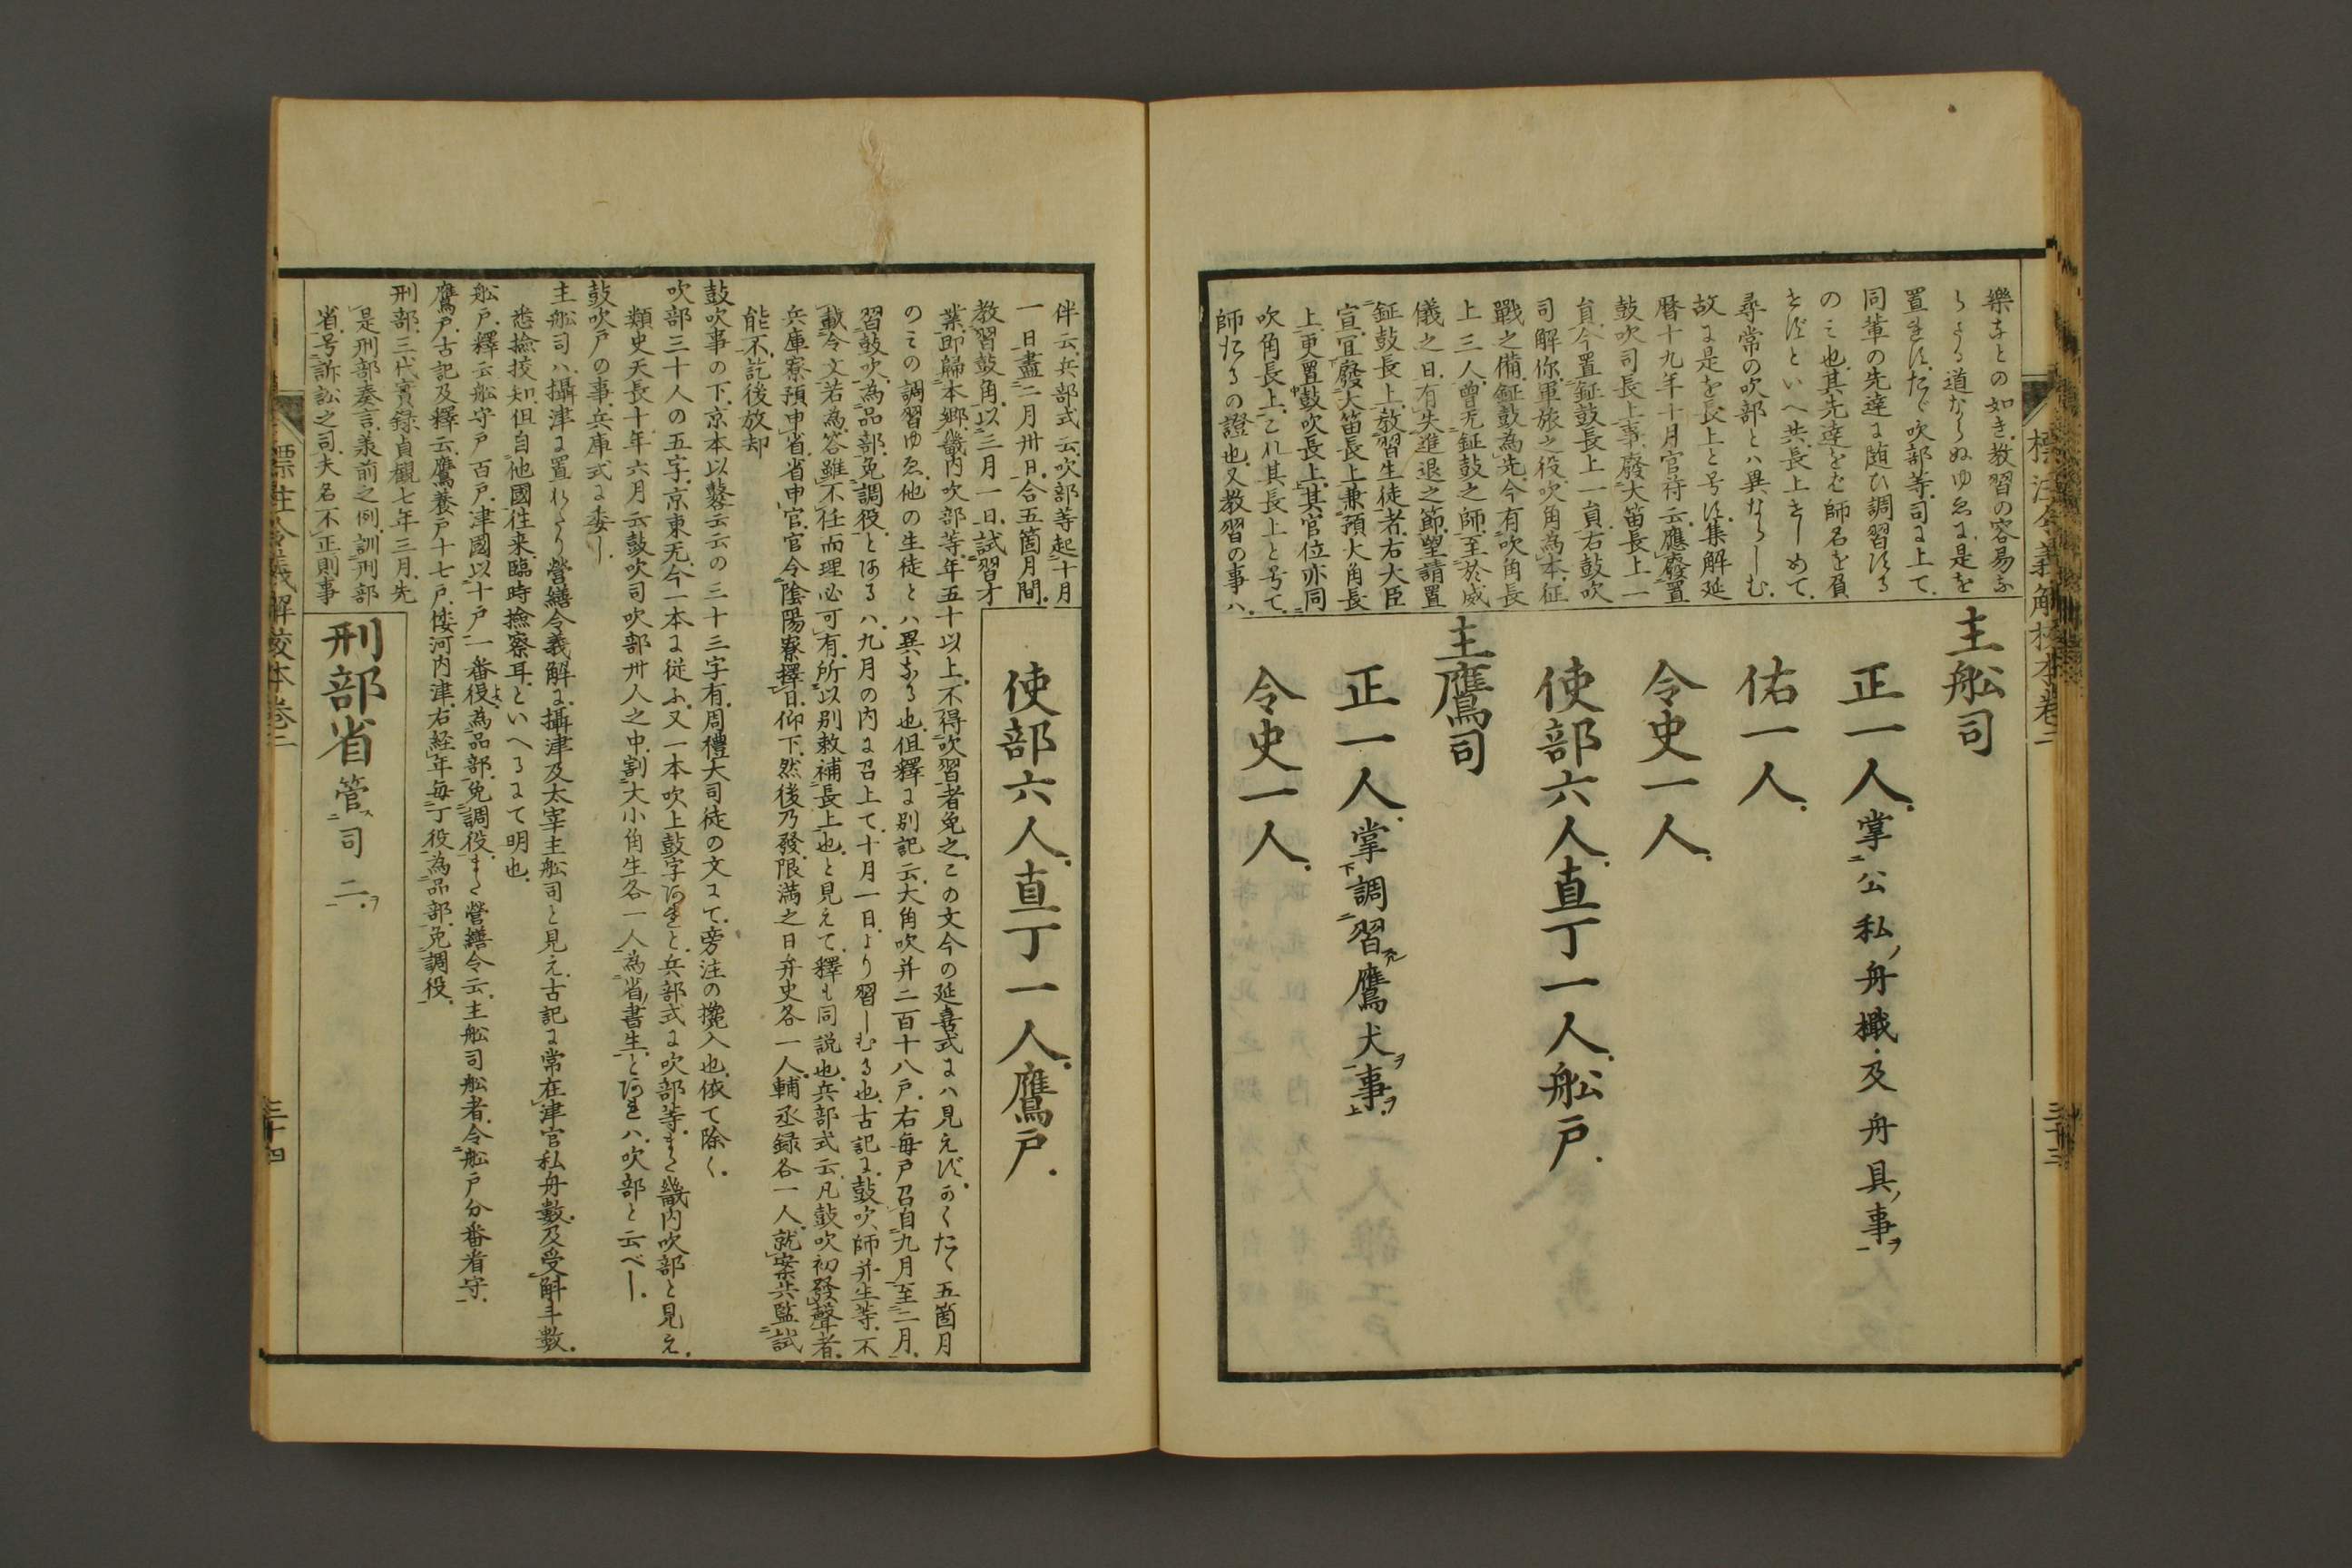 標注令義解校本巻二
三十三
樂なとの如き教習の容易な
らさる道ならぬゆゑに是を
置れす.たゞ吹部等司に上て.
同輩の先達に随ひ調習する
のミ也.其先達をバ師名を負
せずといへ共.長上をしめて.
尋常の吹部とハ異ならしむ.
故に是を長上と号す.集解延
暦十九年十月官符云.應廢置
鼓吹司長上事.廢大笛長上一
員.今置鉦鼓長上一員.右鼓吹
司解偁.軍旅之役.吹角為本.征
戰之備.鉦鼓為先.今有吹角長
上三人.曾无鉦鼓之師.至於威
儀之日.有失進退之節.望請置
鉦鼓長上.教習生徒者.右大臣
宣.宜廢大笛長上.兼預大角長
上.更置鼓吹長上.其官位亦同
吹角長上.これ其長上と号て.
師たるの證也.又教習の事ハ.
主舩司
正一人.掌公私ノ舟檝.及舟具ノ事ヲ
佑一人.
令史一人.
使部六人.直丁一人.舩戸.
主鷹司
正一人.掌調習鷹犬ヲ事ヲ.
令史一人.
伴云.兵部式云.吹部等起十月
一日盡二月卅日.合五箇月間.
教習鼓角.以三月一日.試習才
業.即歸本郷.畿内吹部等.年五十以上.不得吹習者免之.この文今の延喜式にハ見えず.かくたゞ五箇月
のミの調習ゆゑ.他の生徒とハ異なる也.但釋に別記云.大角吹并二百十八戸.右毎戸召自九月至二月.
習鼓吹.為品部.免調役.とあるハ.九月の内に召上て.十月一日より習しむる也.古記に.鼓吹師并生等.不
載令文.若為答.雖不任而理必可有.所以別敕補長上也.と見えて.釋も同説也.兵部式云.凡鼓吹初發聲者.
兵庫寮預申省.省申官.官令陰陽寮擇日.仰下.然後乃發.限満之日弁史各一人.輔丞録各一人.就寮共監試
能不.訖後放却
鼓吹事の下.京本以鼜云云の三十三字有.周禮大司徒の文にて.旁注の攙入也.依て除く.
吹部三十人の五字.京東无.今一本に従ふ.又一本吹上鼓字あれと.兵部式に吹部等.また畿内吹部と見え.
類史天長十年六月云.鼓吹司吹部卅人之中.割大小角生各一人.為省書生とあれハ.吹部と云べし.
鼓吹戸の事.兵庫式に委し
主舩司ハ.攝津に置れたり.營繕令義解に.攝津及太宰主舩司と見え.古記に常在津官私舟數.及受斛斗數.
悉撿挍知.但自他國往来.臨時撿察耳.といへるにて明也.
舩戸.釋云.舩守戸百戸.津國.以十戸一番役.為品部.免調役.また營繕令云.主舩司舩者.令舩戸分番看守.
鷹戸.古記及釋云.鷹養戸十七戸.倭河内津.右經年毎丁役.為品部.免調役.
刑部.三代實録貞觀七年三月.先
是刑部奏言.義前之例.訓刑部
省.号訴訟之司.夫名不正則事
使部六人.直丁一人.鷹戸.
刑部省管司二ヲ.
標注令義解校本巻二
三十四